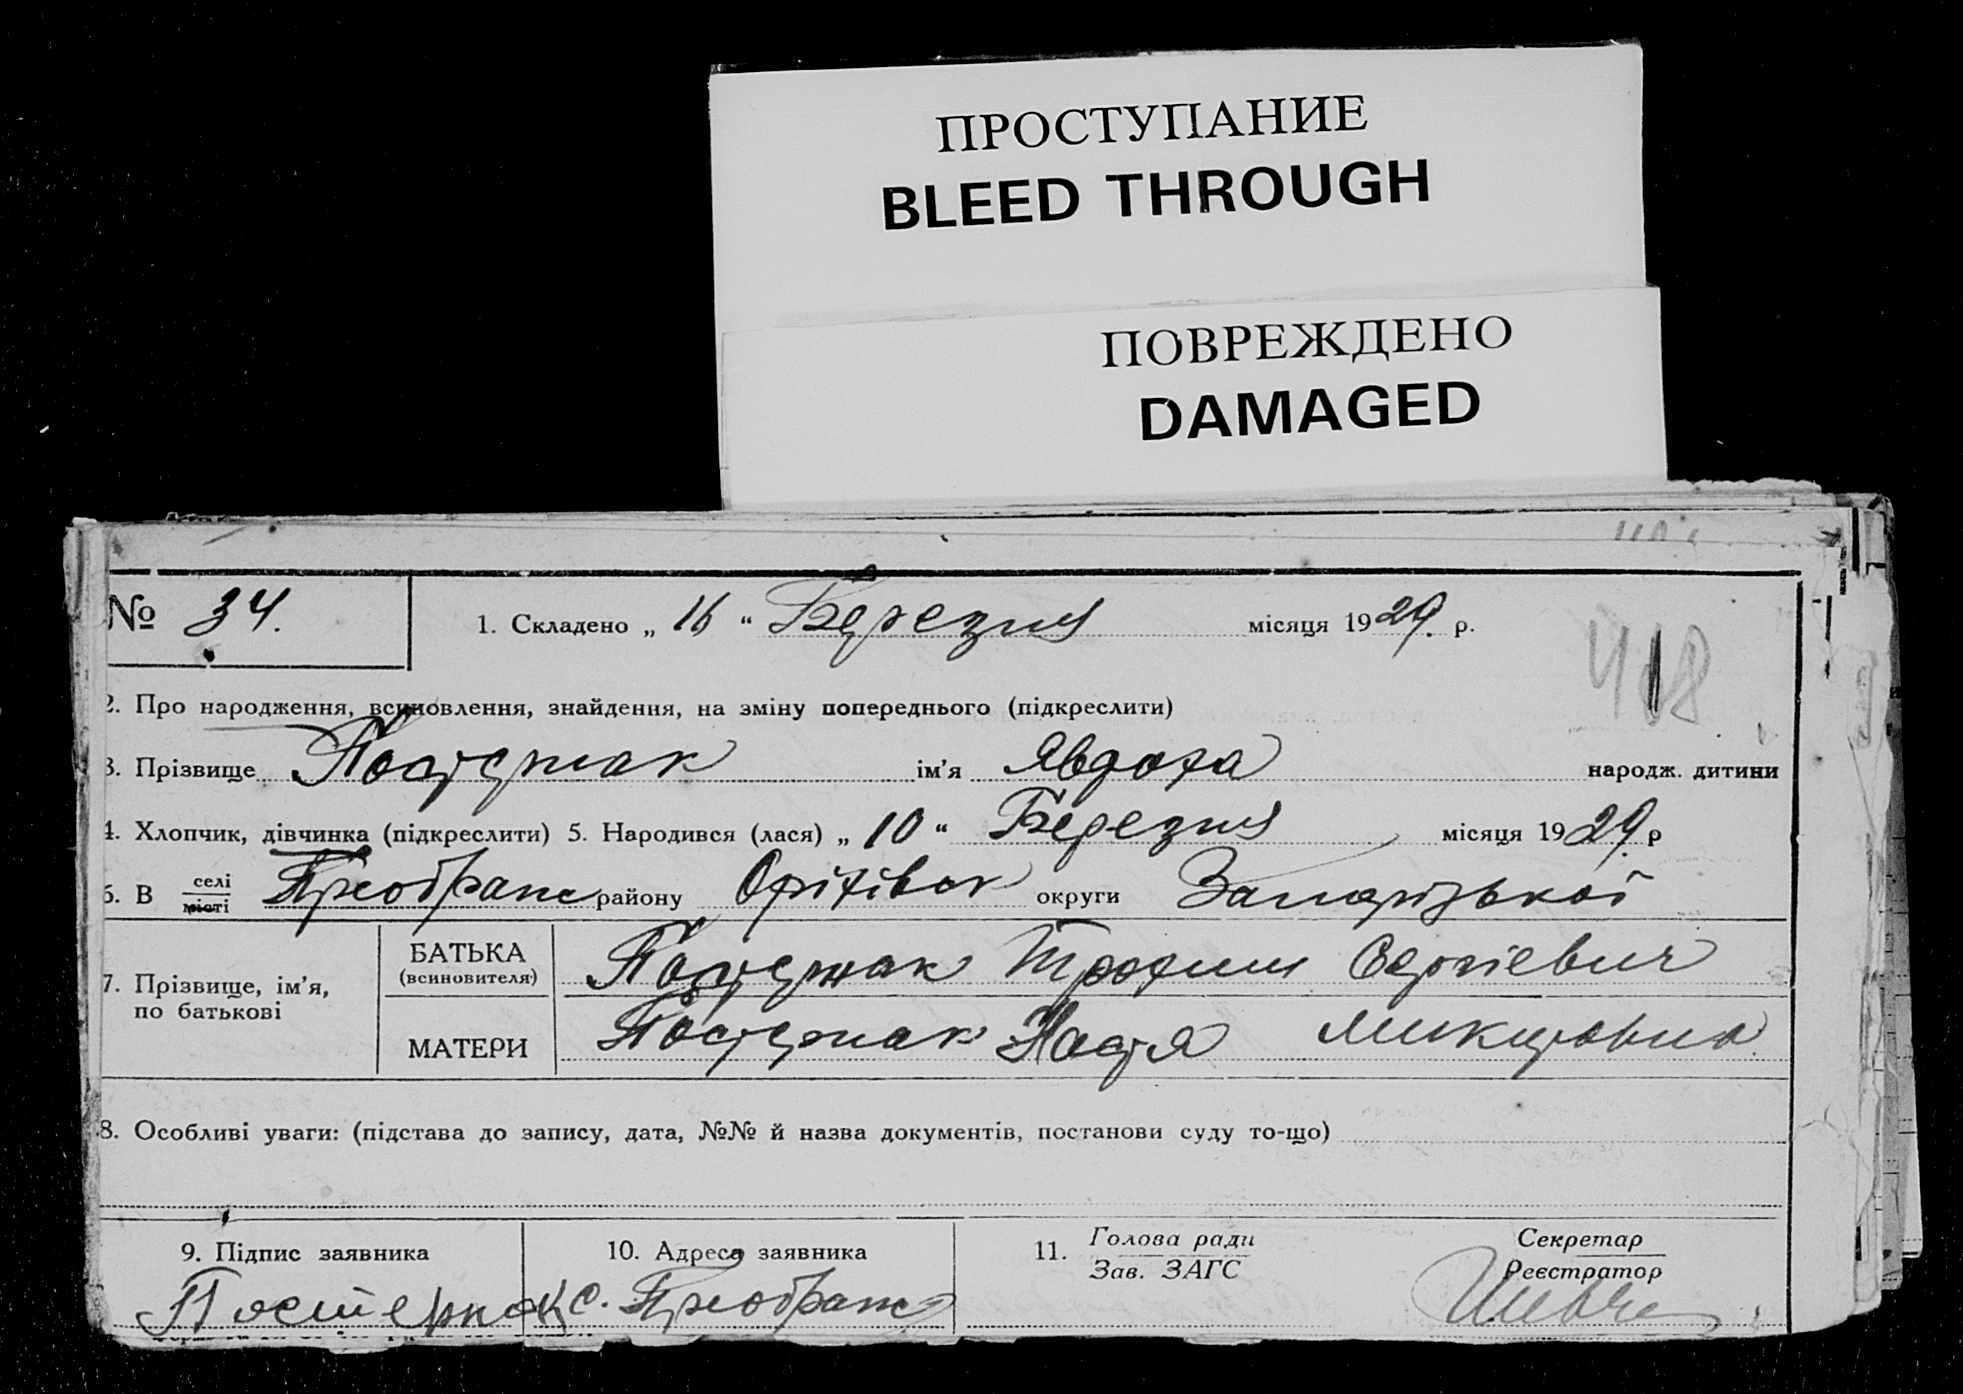 ПРОСТУПАНИЕ
BLEED THROUGH
ПОВРЕЖДЕНО
DAMAGED
№ 34. 1. Складено „ 16 “ Березня місяця 1929. р.
418
2. Про народження, всиновлення, знайдення, на зміну попереднього (підкреслити)
3. Прізвище Постернак ім’я Явдоха народж. дитини
4. Хлопчик, дівчинка (підкреслити) 5. Народився (лася) „ 10 “ Березня місяця 1929. р
6. В селі місті Преображе району Оріхівськ округи Запорізької
7. Прізвище, ім’я, по батькові
БАТЬКА (всиновителя) Постернак Трофим Сергієвич
МАТЕРИ Постернак Настя Микитовна
8. Особливі уваги: (підстава до запису, дата, №№ й назва документів, постанови суду то-що)
9. Підпис заявника 10. Адреса заявника 11. Голова ради Зав. ЗАГС Секретар Реєстратор
Постернак с. Преображе